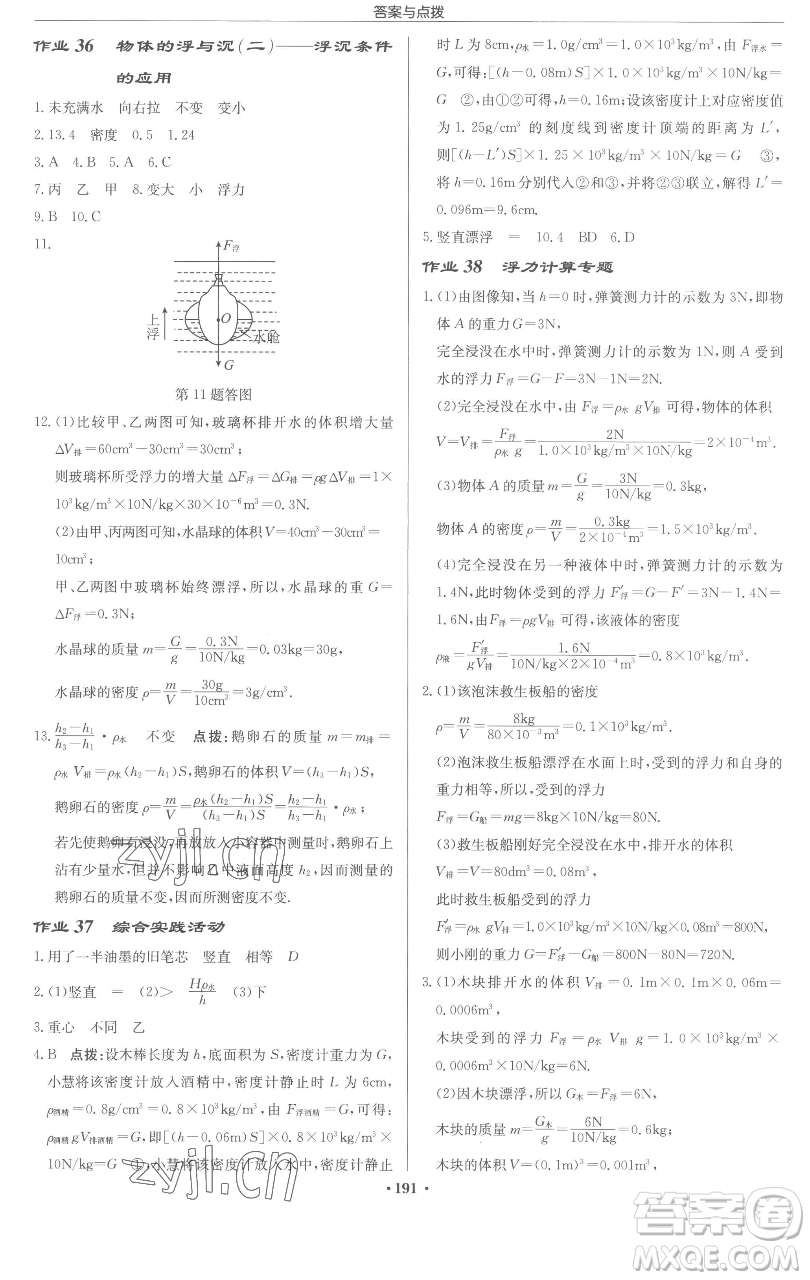 答案与点拨
作业 36 物体的浮与沉(二)——浮沉条件
的应用
1.未充满水 向右拉 不变 变小
2.13.4 密度 0.5 1.24
3.A 4.B 5.A 6.C
7.丙 乙 甲 8.变大 小 浮力
9.B 10.C
11.
F浮
上浮
O
水舱
G
第 11 题答图
12.(1)比较甲、乙两图可知,玻璃杯排开水的体积增大量
ΔV排=60cm³-30cm³=30cm³;
则玻璃杯所受浮力的增大量 ΔF浮=ΔG排=ρgΔV排=1×
10³kg/m³×10N/kg×30×10⁻⁶m³=0.3N.
(2)由甲、丙两图可知,水晶球的体积 V=40cm³-30cm³=
10cm³;
甲、乙两图中玻璃杯始终漂浮,所以,水晶球的重 G=
ΔF浮=0.3N;
水晶球的质量 m=G/g=0.3N/10N/kg=0.03kg=30g,
水晶球的密度 ρ=m/V=30g/10cm³=3g/cm³.
13.(h₂-h₁)/(h₃-h₁)·ρ水 不变 点拨:鹅卵石的质量 m=m排=
ρ水 V排=ρ水(h₂-h₁)S,鹅卵石的体积 V=(h₃-h₁)S,
鹅卵石的密度 ρ=m/V=ρ水(h₂-h₁)S/(h₃-h₁)S=(h₂-h₁)/(h₃-h₁)·ρ水;
若先使鹅卵石浸没,再放放入小容器中测量时,鹅卵石上
沾有少量水,但并不影响乙中液面高度 h₂,因而测量的
鹅卵石的质量不变,因而所测密度不变.
作业 37 综合实践活动
1.用了一半油墨的旧笔芯 竖直 相等 D
2.(1)竖直 = (2)> Hρ水/h (3)下
3.重心 不同 乙
4.B 点拨:设木棒长度为 h,底面积为 S,密度计重力为 G,
小慧将该密度计放入酒精中,密度计静止时 L 为 6cm,
ρ酒精=0.8g/cm³=0.8×10³kg/m³,由 F浮酒精=G,可得:
ρ酒精gV排酒精=G,即[(h-0.06m)S]×0.8×10³kg/m³×
10N/kg=G ①,小慧将该密度计放入水中,密度计静止
时 L 为 8cm,ρ水=1.0g/cm³=1.0×10³kg/m³,由 F浮水=
G,可得:[(h-0.08m)S]×1.0×10³kg/m³×10N/kg=
G ②,由①②可得,h=0.16m;设该密度计上对应密度值
为 1.25g/cm³ 的刻度线到密度计顶端的距离为 L′,
则[(h-L′)S]×1.25×10³kg/m³×10N/kg=G ③,
将 h=0.16m 分别代入②和③,并将②③联立,解得 L′=
0.096m=9.6cm.
5.竖直漂浮 = 10.4 BD 6.D
作业 38 浮力计算专题
1.(1)由图像知,当 h=0 时,弹簧测力计的示数为 3N,即物
体 A 的重力G=3N,
完全浸没在水中时,弹簧测力计的示数为 1N,则 A 受到
水的浮力 F浮=G-F=3N-1N=2N.
(2)完全浸没在水中,由 F浮=ρ水 gV排可得,物体的体积
V=V排=F浮/ρ水 g=2N/1.0×10³kg/m³×10N/kg=2×10⁻⁴m³.
(3)物体 A 的质量 m=G/g=3N/10N/kg=0.3kg,
物体 A 的密度 ρ=m/V=0.3kg/2×10⁻⁴m³=1.5×10³kg/m³.
(4)完全浸没在另一种液体中时,弹簧测力计的示数为
1.4N,此时物体受到的浮力 F′浮=G-F′=3N-1.4N=
1.6N,由 F浮=ρgV排可得,该液体的密度
ρ液=F′浮/gV排=1.6N/10N/kg×2×10⁻⁴m³=0.8×10³kg/m³.
2.(1)该泡沫救生板船的密度
ρ=m/V=8kg/80×10⁻³m³=0.1×10³kg/m³.
(2)泡沫救生板船漂浮在水面上时受到的浮力和自身的
重力相等,所以,受到的浮力
F浮=G船=mg=8kg×10N/kg=80N.
(3)救生板船刚好完全浸没在水中,排开水的体积
V排=V=80dm³=0.08m³,
此时救生板船受到的浮力
F′浮=ρ水gV排=1.0×10³kg/m³×10N/kg×0.08m³=800N,
则小刚的重力 G=F′浮-G船=800N-80N=720N.
3.(1)木块排开水的体积 V排=0.1m×0.1m×0.06m=
0.0006m³,
木块受到的浮力 F浮=ρ水 V排 g=1.0×10³kg/m³×
0.0006m³×10N/kg=6N.
(2)因木块漂浮,所以 G木=F浮=6N,
木块的质量 m=G木/g=6N/10N/kg=0.6kg;
木块的体积 V木=0.1m×0.1m×0.1m=0.001m³,
·191·
zyjl.cn
zyjl.cn
答案圈
MXQE.COM